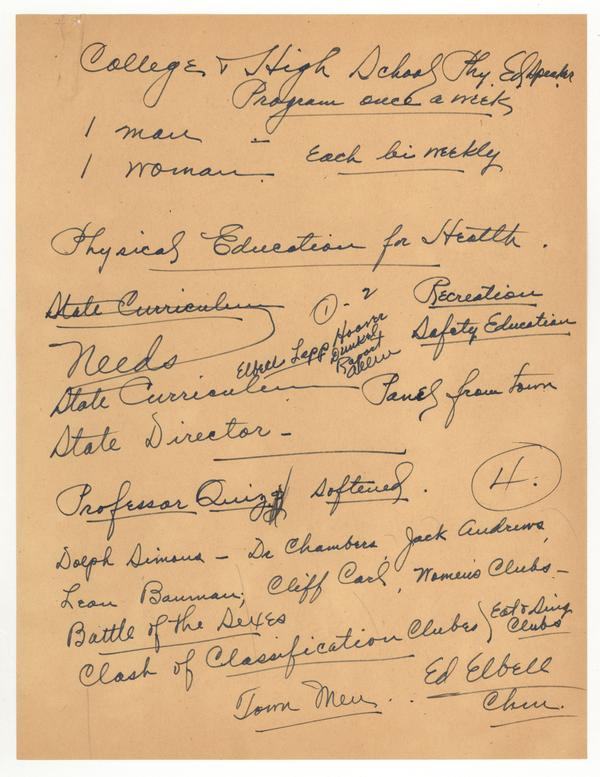 College & High School Phy. Ed Speaker
Program once a week
1 man -
1 woman. Each bi weekly
Physical Education for Health.
State Curriculum ① - 2 Recreation
Safety Education
Needs Elbell Lapp Hoover
Dunkel
Rapart
Allen
State Curriculum Panel from town
State Director -
Professor Quizz softened. 4.
Dolph Simons - Dr Chambers, Jack Andrews,
Leon Bauman, Cliff Carl, Women's Clubs -
Battle of the Sexes
Clash of Classification Clubes Eat & Sing
Clubs
Town Men .. Ed Elbell
Chm.